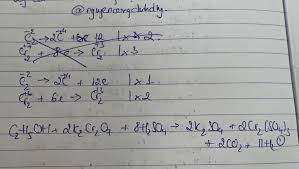 @nguyencongchinhdng
C₂⁻² → 2C⁺⁴ + 12
Cr₂⁺⁶ + 8e → Cr₂⁺³ | x 3
C₂⁻² → 2C⁺⁴ + 12e | x 1
Cr⁺⁶ + 6e → Cr₂⁺³ | x 2
C₂H₅OH + 2K₂Cr₂O₇ + 8H₂SO₄ → 2K₂SO₄ + 2Cr₂(SO₄)₃
+ 2CO₂ + 11H₂O